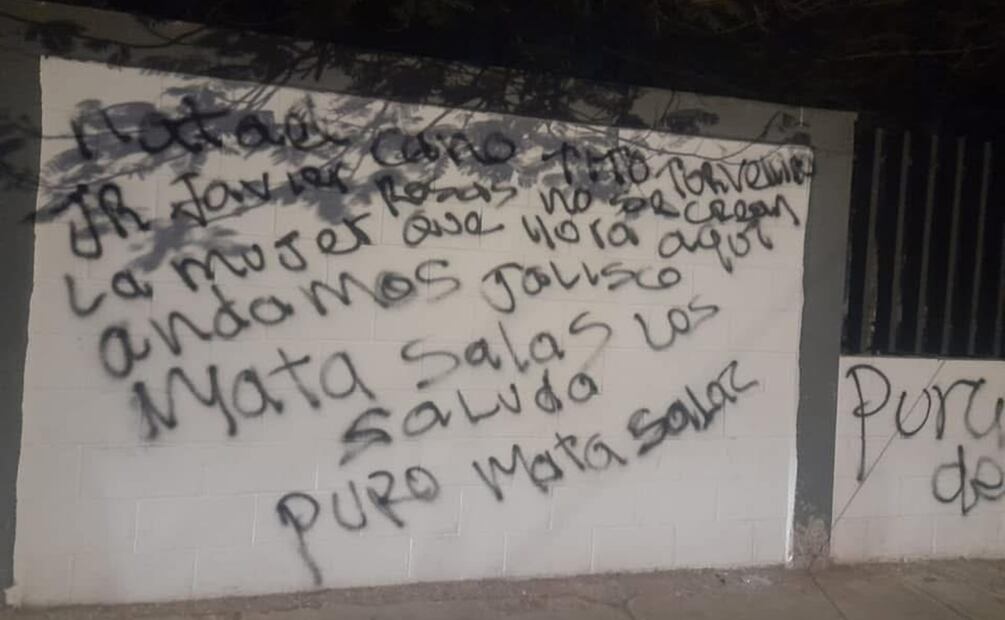 Natael cano TITO TORVELLINO
JR Javier Rosas no se crean
La mujer que llora aquí
andamos Jalisco
Mata salas Los
saluda
puro Mata salas
Pura
de